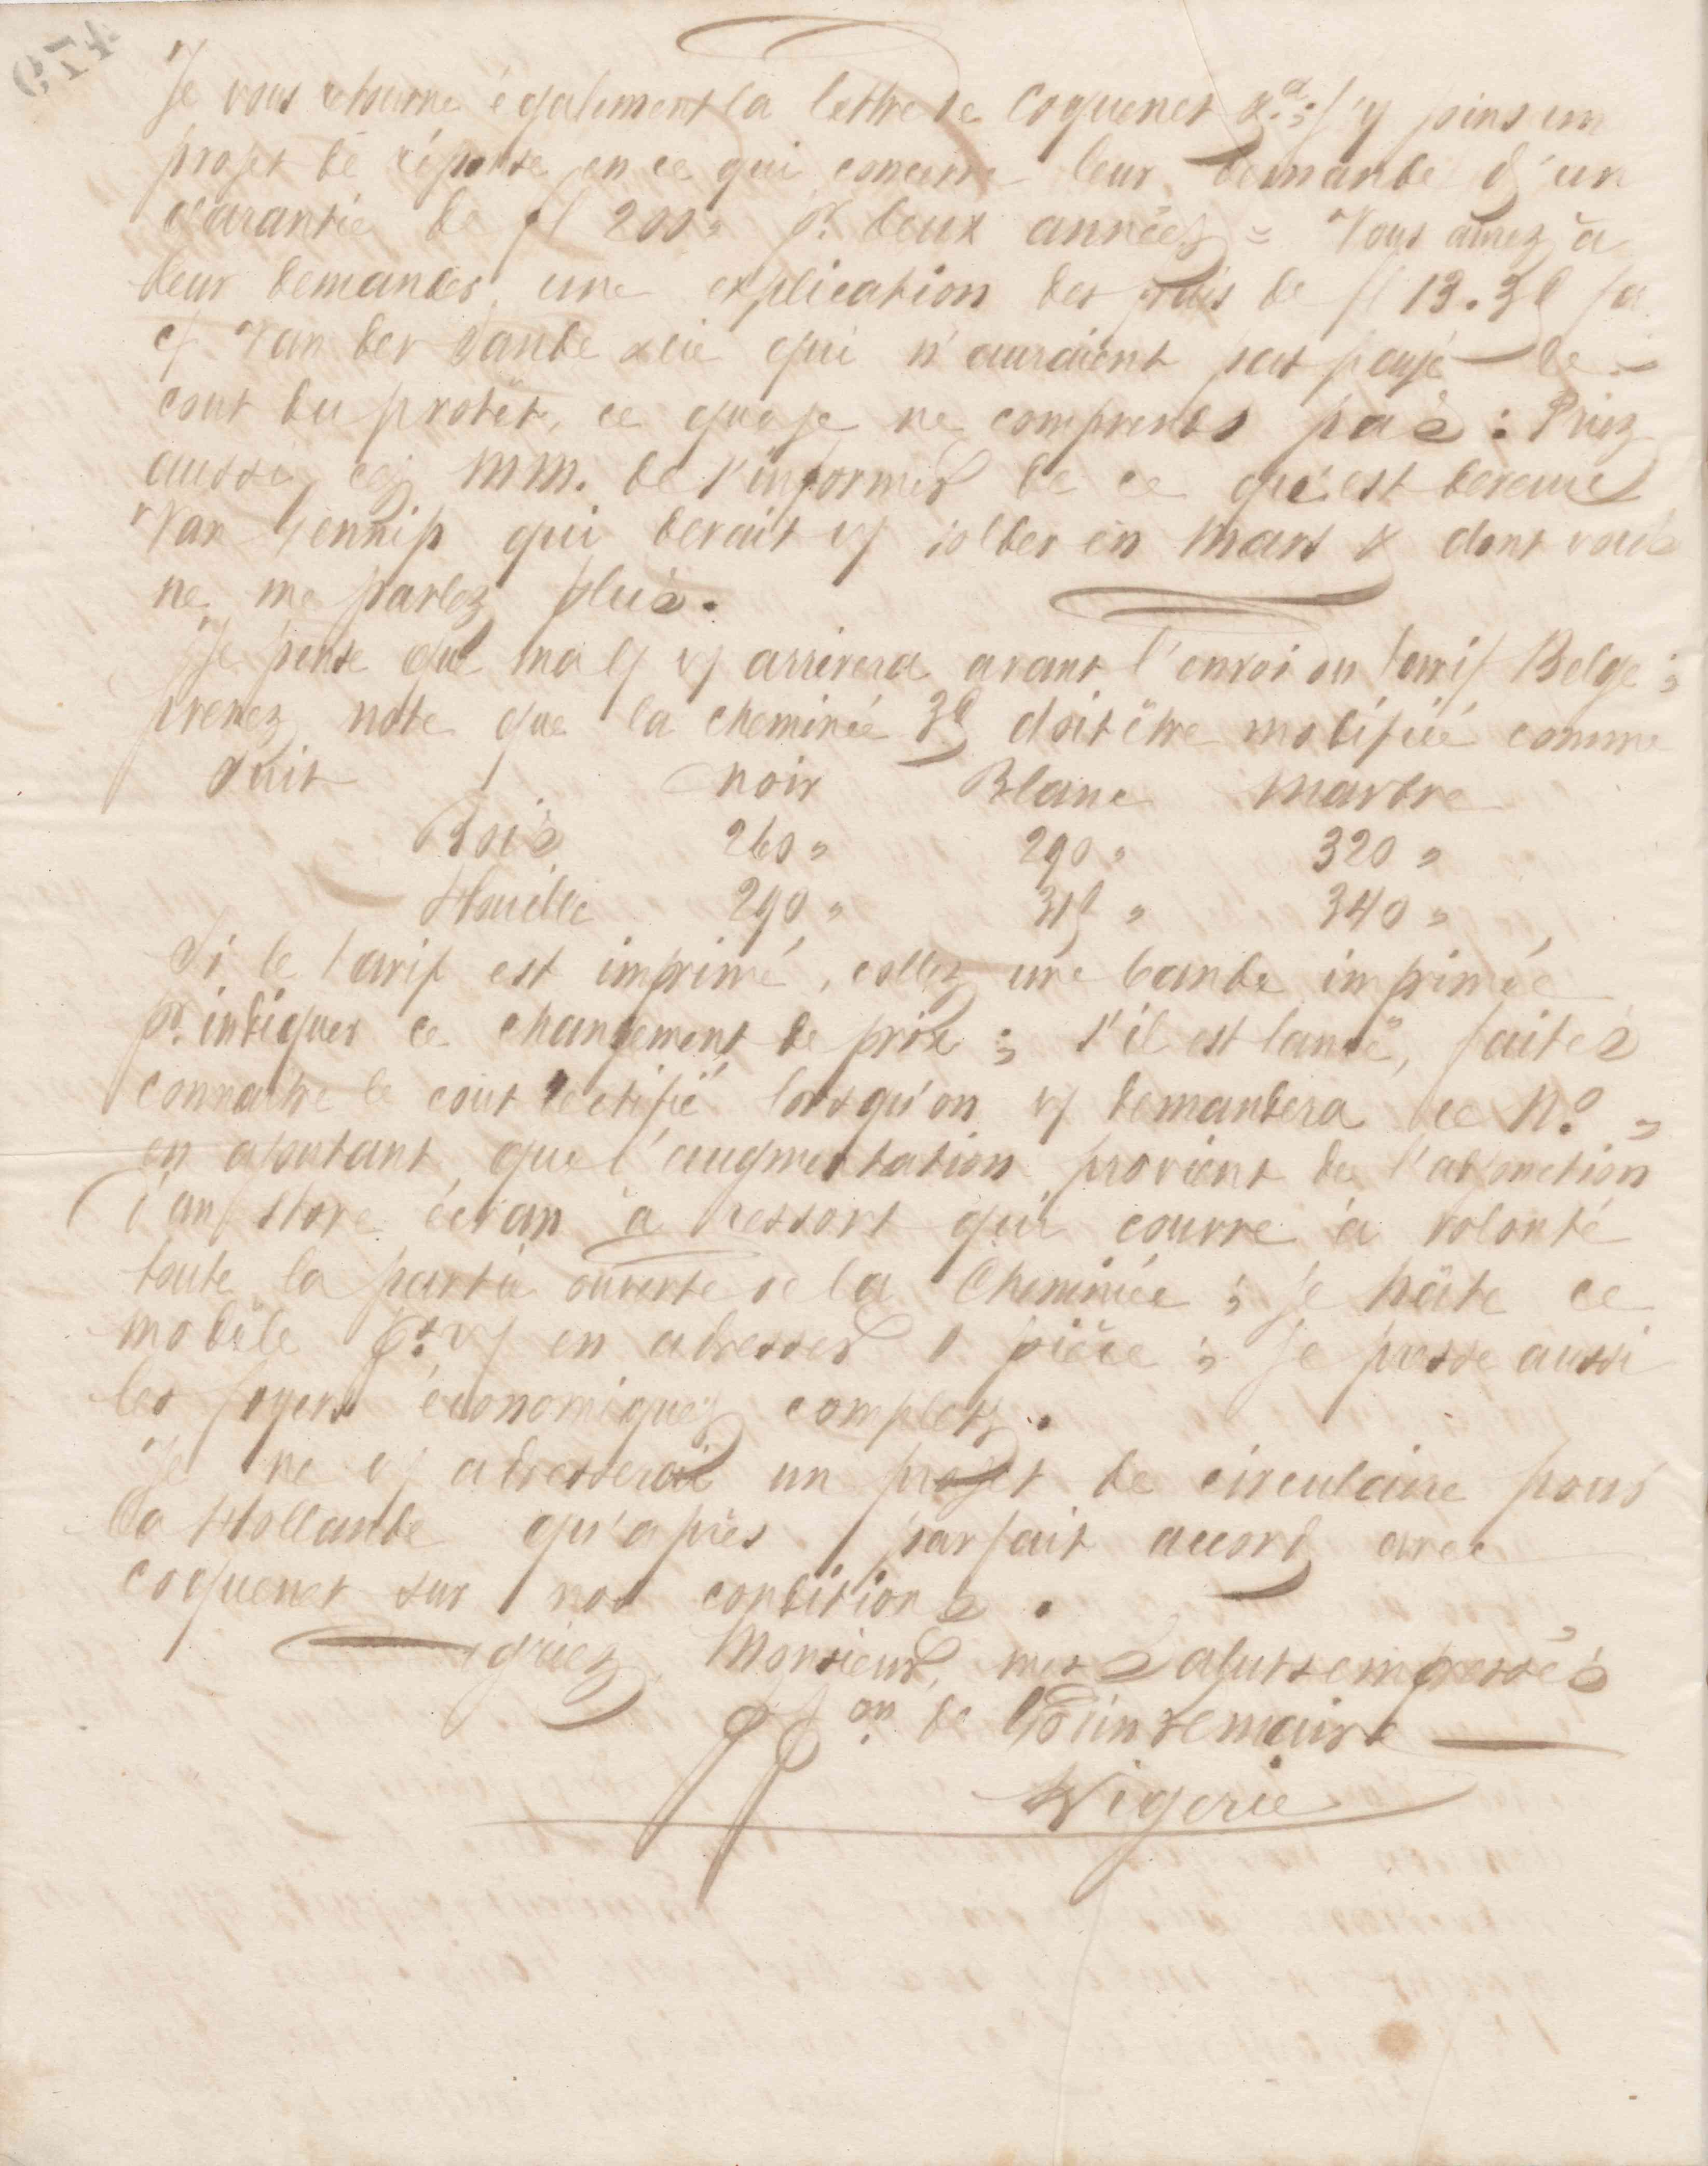 674
Je vous retourne également la lettre de Coquenet &a; j'y joins un
projet de réponse en ce qui concerne leur demande d'un
garantie de fl 200 " pr. deux années = Vous aurez à
leur demander une explication des frais de fl 13.30
Van der Sande & Cie qui n'auraient pas payé le
cout du protêt, ce que je ne comprends pas : Priez
aussi ces MM. de s'informer de ce qu'est devenu
Van Gennip qui devait vs solder en Mars & dont vous
ne me parlez plus.
Je pense que ma vs arrivera avant l'envoi du tarif Belge ;
prenez note que la cheminée doit être modifiée comme
suit noir Blanc Marbre
Bois 260 " 290 " 320 "
Houille 290 " 315 " 340 "
Si le tarif est imprimé, collez une bande imprimée
pr. indiquer ce changement de prix ; s'il est lancé, faites
connaitre le cout rectifié lorsqu'on vs demandera ce No.,
en ajoutant que l'augmentation provient de l'adjonction
d'un store écran à ressort qui couvre à volonté
toute la partie ouverte de la Cheminée ; je hâte ce
modèle pr. vs en adresser pièce ; je presse aussi
les foyers économiques complets.
Je ne vs adresserai un projet de circulaire pour
la Hollande qu'après parfait accord avec
Coquenet sur nos conditions.
Agréez, Monsieur, mes Saluts empressés
on. de